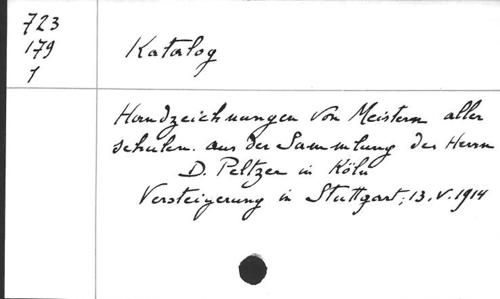 723
179
1
Katalog
Handzeichnungen von Meistern aller
schulen. aus der Sammlung des Herrn
D. Peltzer in Köln
Versteigerung in Stuttgart; 13.V.1914